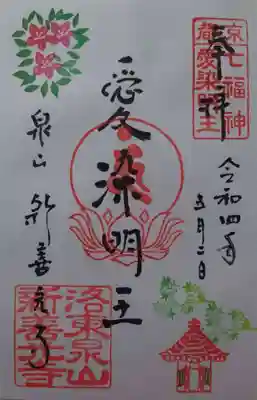 奉拝
京七福神
都愛染明王
令和四年
五月二日
愛染明王
泉山 新善光寺
洛東泉山
新善光寺